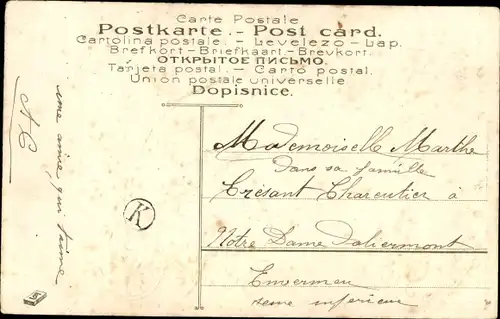 Carte Postale
Postkarte. - Post card.
Cartolina postale. - Levelezo - Lap.
Brefkort - Briefkaart. - Brevkort.
ОТКРЫТОЕ ПИСЬМО.
Tarjeta postal. - Carto postal.
Union postale universelle
Dopisnice.
une amie qui t'aime
A C
K
Mademoiselle Marthe
Dans sa famille
Crésant Charcutier à
Notre Dame Daliermont
Envermeu
seine inferieur